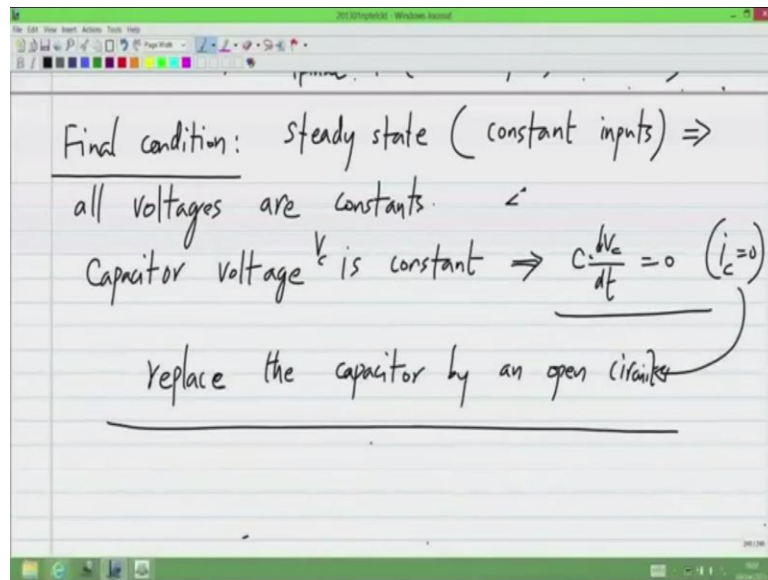 201301nptelckt - Windows Journal
File Edit View Insert Actions Tools Help
Page Width
Final condition: Steady state ( constant inputs) ⇒
all voltages are constants.
Capacitor voltage Vc is constant ⇒ C·dVc/dt = 0 (ic=0)
replace the capacitor by an open circuit